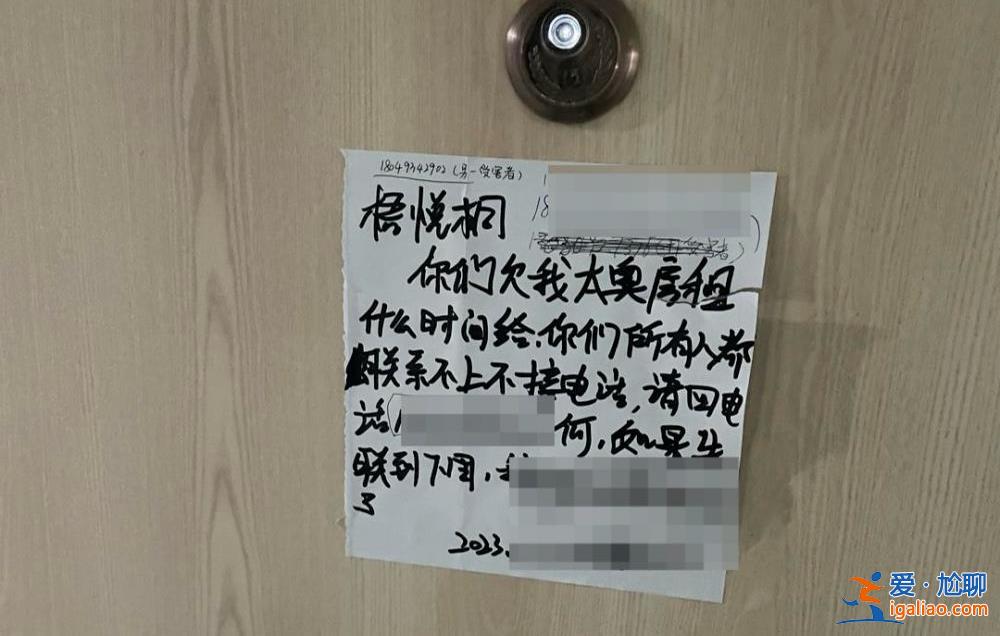 18049342902(另一受害者)
18
受害者)
梧悦桐
你们欠我太奥房租
什么时间给.你们所有人都
联系不上不接电话,请回电
话 何,如果
联到下周,
了
2023.
爱·尬聊
igaliao.com